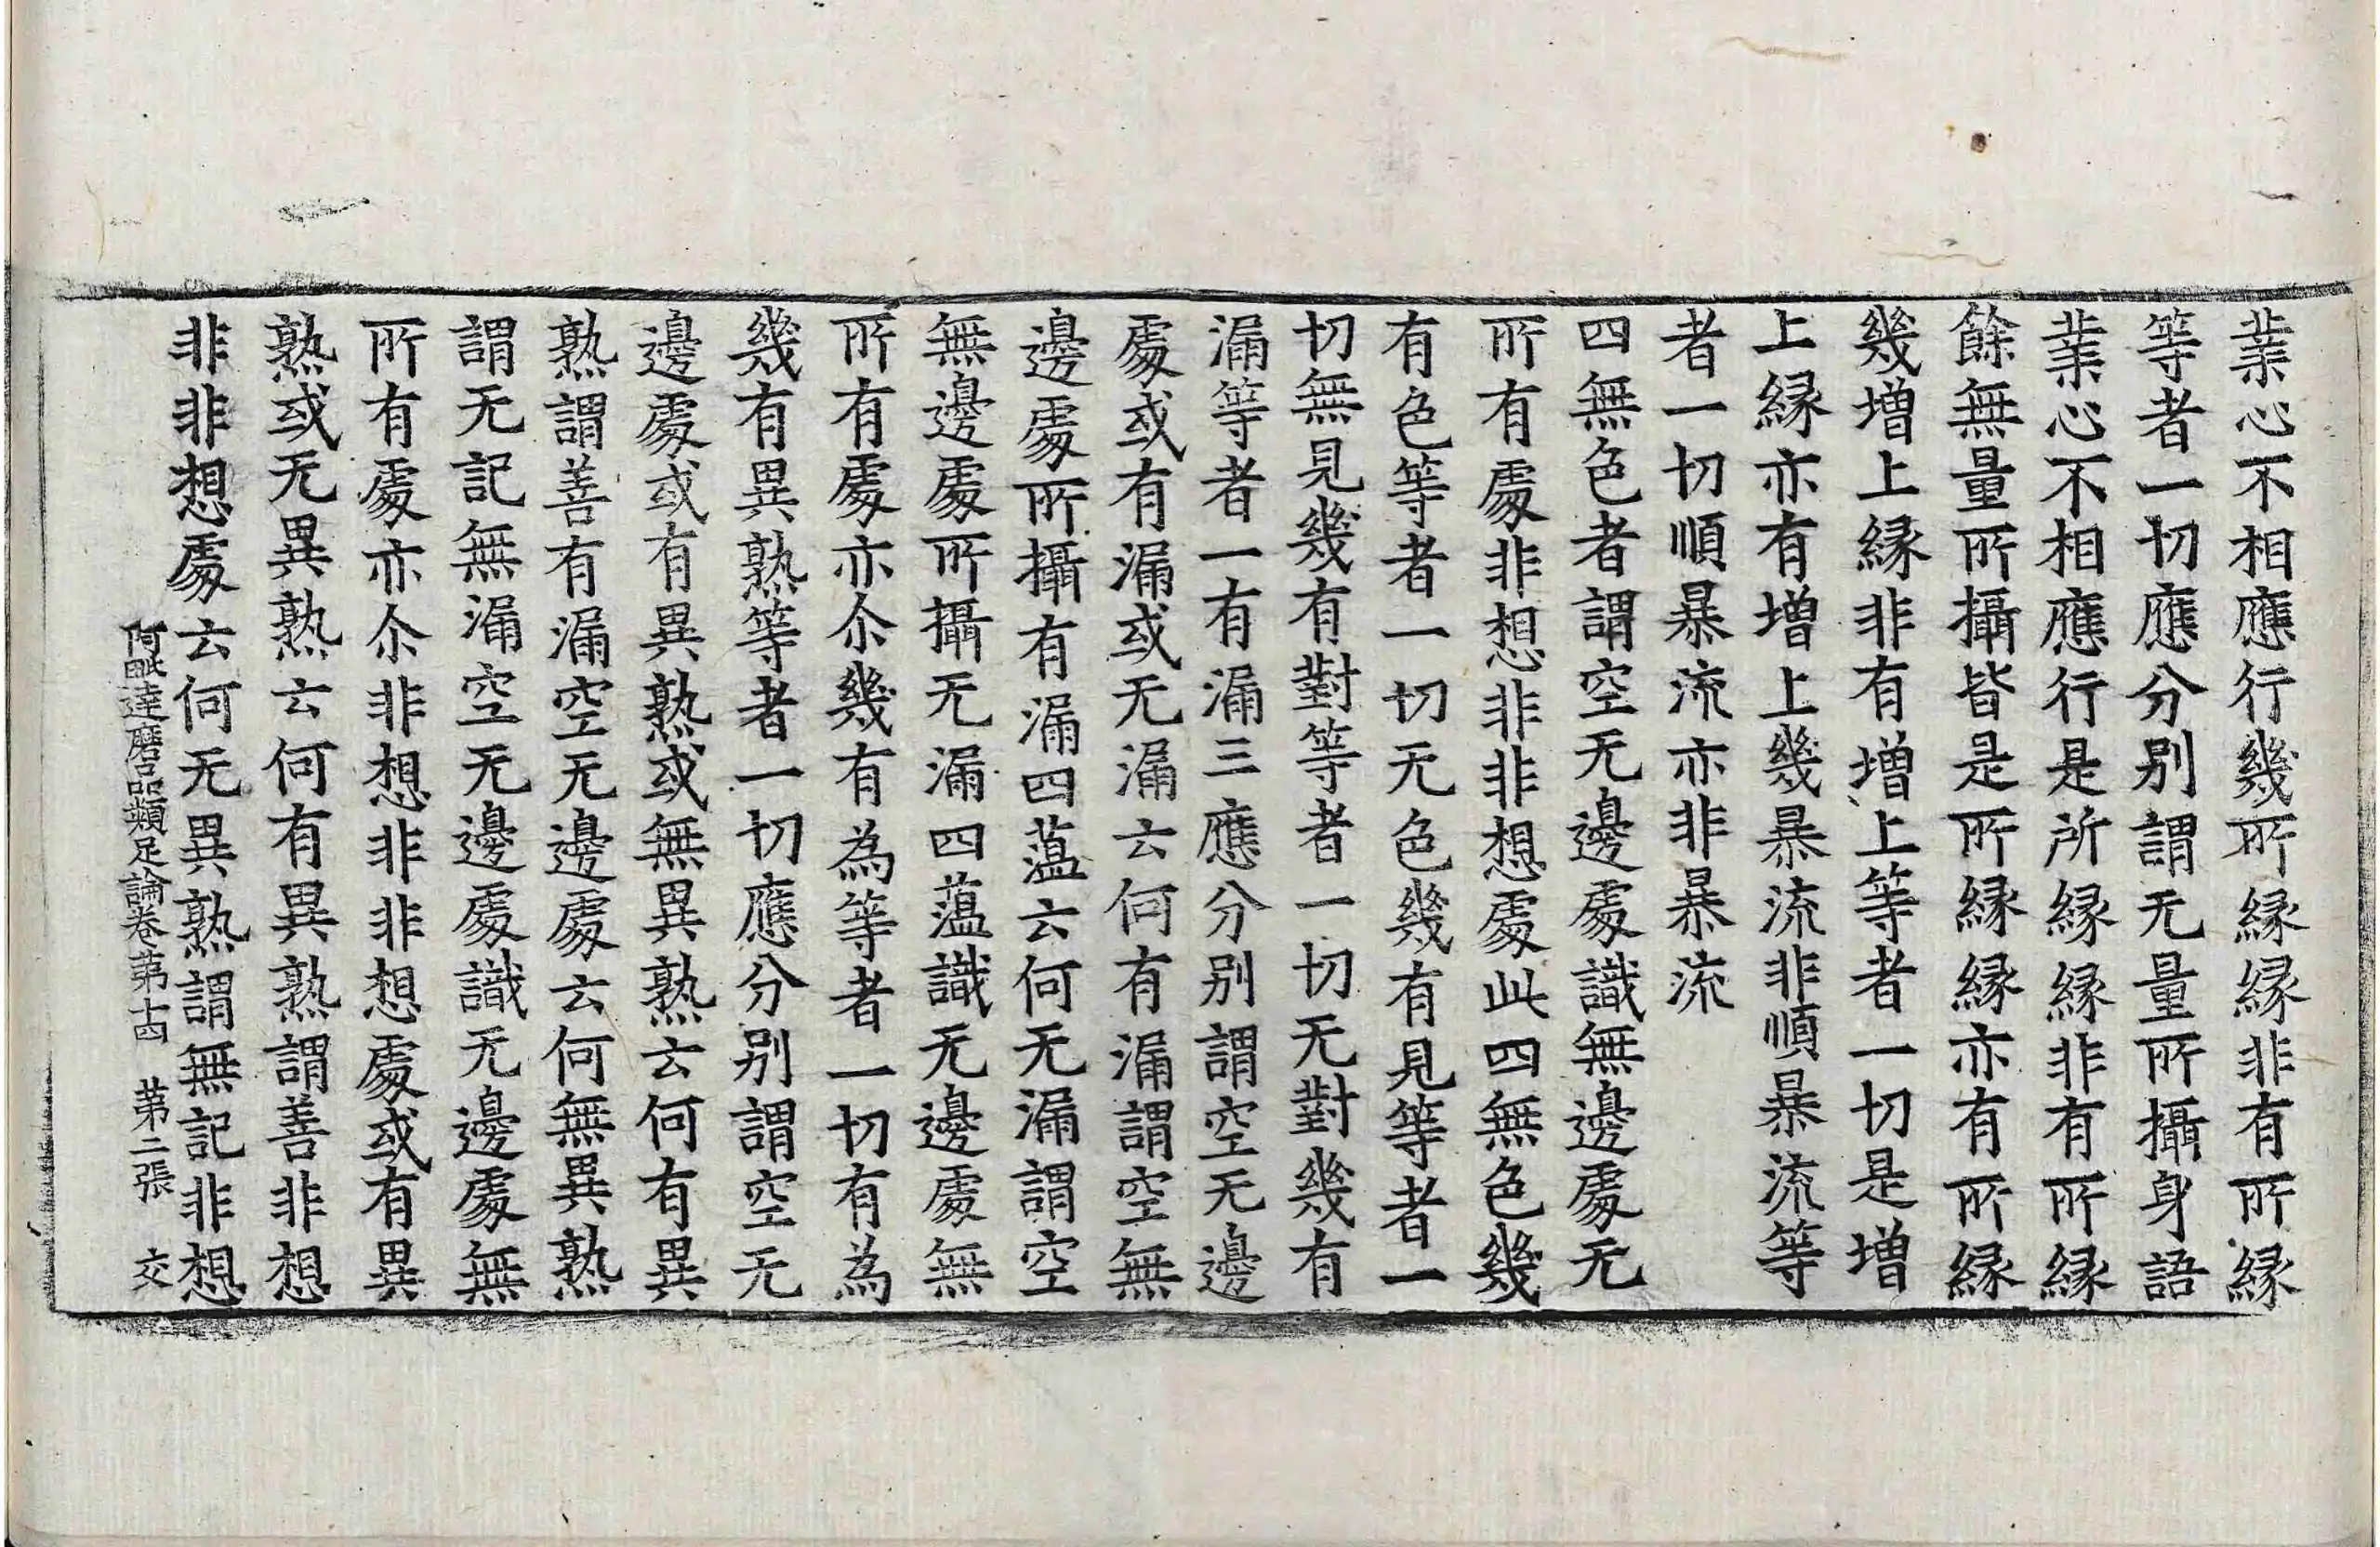 業心不相應行幾所縁縁非有所縁
等者一切應分別謂无量所攝身語
業心不相應行是所縁縁非有所縁
餘無量所攝皆是所縁縁亦有所縁
幾增上縁非有增上等者一切是增
上縁亦有增上幾暴流非順暴流等
者一切順暴流亦非暴流
四無色者謂空无邊處識無邊處无
所有處非想非非想處此四無色幾
有色等者一切无色幾有見等者一
切無見幾有對等者一切无對幾有
漏等者一有漏三應分別謂空无邊
處或有漏或无漏云何有漏謂空無
邊處所攝有漏四蘊云何无漏謂空
無邊處所攝无漏四蘊識无邊處無
所有處亦尒幾有為等者一切有為
幾有異熟等者一切應分別謂空无
邊處或有異熟或無異熟云何有異
熟謂善有漏空无邊處云何無異熟
謂无記無漏空无邊處識无邊處無
所有處亦尒非想非非想處或有異
熟或无異熟云何有異熟謂善非想
非非想處云何无異熟謂無記非想
阿毗達磨品類足論卷第十四 第二張 交